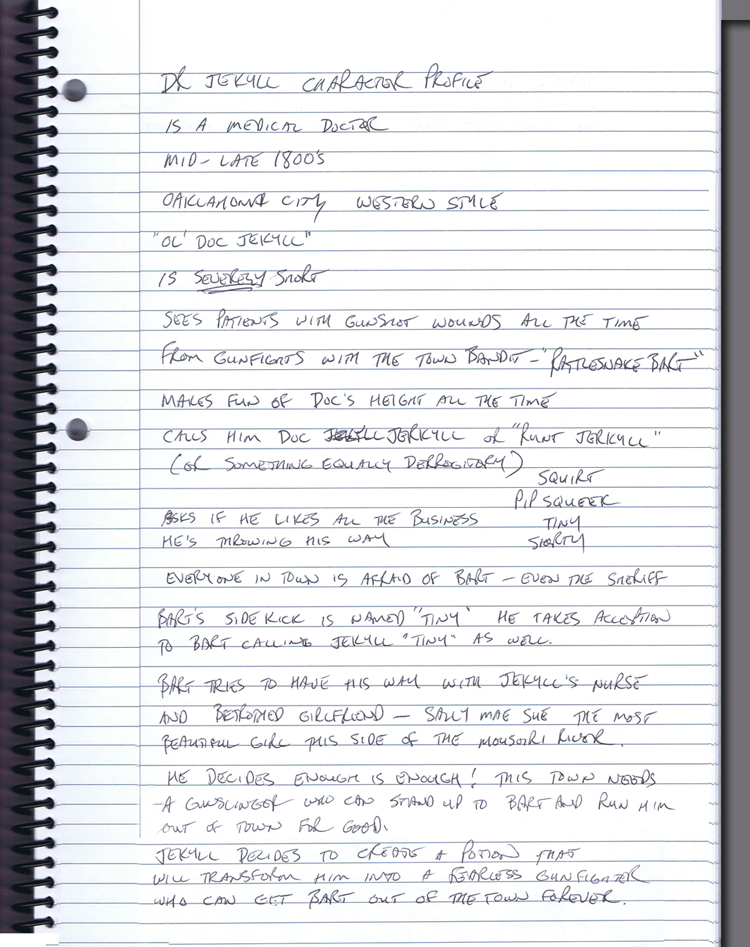 DR JEKYLL CHARACTER PROFILE
IS A MEDICAL DOCTOR
MID-LATE 1800'S
OAKLAHOMA CITY WESTERN STYLE
"OL' DOC JEKYLL"
IS SEVERELY SHORT
SEES PATIENTS WITH GUNSHOT WOUNDS ALL THE TIME
FROM GUNFIGHTS WITH THE TOWN BANDIT - "RATTLESNAKE BART"
MAKES FUN OF DOC'S HEIGHT ALL THE TIME
CALLS HIM DOC JERKYLL OR "RUNT JERKYLL"
(OR SOMETHING EQUALLY DERROGITORY)
SQUIRT
PIP SQUEEK
ASKS IF HE LIKES ALL THE BUSINESS
TINY
HE'S THROWING HIS WAY
SHORTY
EVERYONE IN TOWN IS AFRAID OF BART - EVEN THE SHERIFF
BART'S SIDE KICK IS NAMED "TINY" HE TAKES ACCEPTION
TO BART CALLING JEKYLL "TINY" AS WELL.
BART TRIES TO HAVE HIS WAY WITH JEKYLL'S NURSE
AND BETROTHED GIRLFRIEND - SALLY MAE SUE THE MOST
BEAUTIFUL GIRL THIS SIDE OF THE RIVER.
HE DECIDES ENOUGH IS ENOUGH! THIS TOWN NEEDS
A GUNSLINGER WHO CAN STAND UP TO BART AND RUN HIM
OUT OF TOWN FOR GOOD.
JEKYLL DECIDES TO CREATE A POTION THAT
WILL TRANSFORM HIM INTO A FEARLESS GUNFIGHTER
WHO CAN GET BART OUT OF THE TOWN FOREVER.